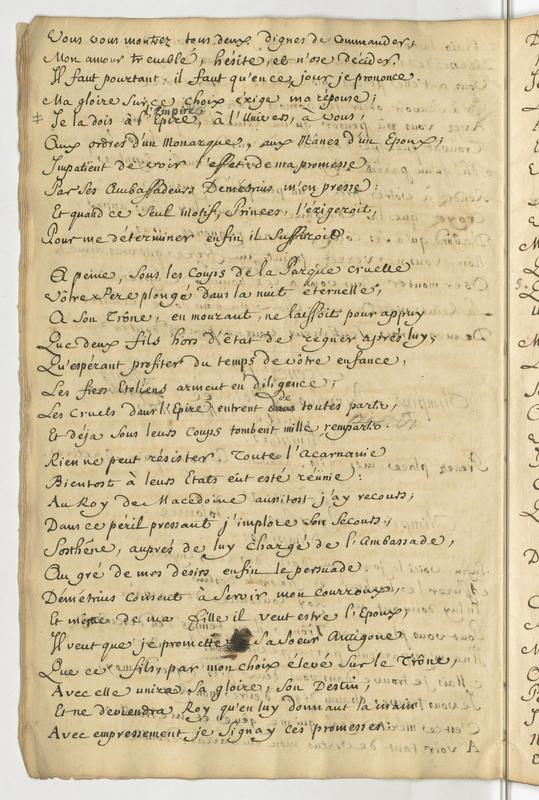 Vous vous montrez tous deux dignes de Commander;
Mon amour tremble, hésite, et n'ose décider.
Il faut pourtant, il faut qu'en ce jour je prononce.
Ma gloire sur ce choix exige ma réponse;
l'Empire
Je la dois à l'Epire, à l'Univers, à vous,
Aux ordres d'un Monarque, aux Mânes d'un Epoux;
Impatient de voir l'effet de ma promesse,
Par ses Ambassadeurs Demétrius m'en presse:
Et quand ce seul motif, Princes, l'éxigeroit,
Pour me déterminer enfin il suffiroit.
A peine, sous les coups de la Parque cruelle
Vôtre Pere plongé dans la nuit éternelle,
A son Trône, en mourant, ne laissoit pour appuy
Que deux fils hors d'état de regner après luy,
Qu'espérant profiter du temps de vôtre enfance,
Les fiers Etoliens arment en diligence;
Les cruels dans l'Epire, entrent de toutes parts,
Et déja sous leurs coups tombent mille remparts.
Rien ne peut résister. Toute l'Acarnanie
Bientost à leurs Etats eut esté réünie:
Au Roy de Macedoine aussitost j'ay recours;
Dans ce peril pressant j'implore son Secours;
Sosthéne, auprés de luy chargé de l'Ambassade,
Au gré de mes désirs enfin le persuade.
Démétrius consent à servir mon courroux,
Et même de ma fille il veut estre l'Epoux;
Il veut que je promette à sa Soeur Antigone
Que ce fils, par mon choix élevé sur le Trône,
Avec elle unira sa gloire, son Destin,
Et ne deviendra Roy qu'en luy donnant la main.
Avec empressement je signay ces promesses: